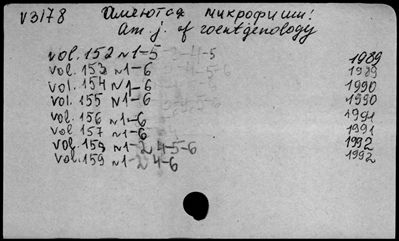 V3178 Имеются микрофиши:
Am. j. of roentgenology
vol. 152 N1-5 1989
vol. 153 N1-6 1989
vol. 154 N1-6 1990
vol. 155 N1-6 1990
vol. 156 N1-6 1991
vol. 157 N1-6 1991
vol. 159 N1-2 4-5-6 1992
vol. 159 N1-2 4-6 1992